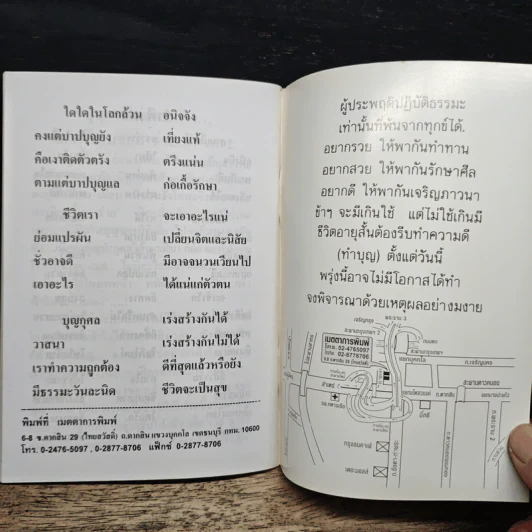 ใดใดในโลกล้วน อนิจจัง
คงแต่บาปบุญยัง เที่ยงแท้
คือเงาติดตัวตรัง ตรึงแน่น
ตามแต่บาปบุญแล ก่อเกื้อรักษา
ชีวิตเรา จะเอาอะไรแน่
ย่อมแปรผัน เปลี่ยนจิตและนิสัย
ชั่วอาจดี มีอาจจนวนเวียนไป
เอาอะไร ได้แน่แก่ตัวตน
บุญกุศล เร่งสร้างกันได้
วาสนา เร่งสร้างกันไม่ได้
เราทำความถูกต้อง ดีที่สุดแล้วหรือยัง
มีธรรมะวันละนิด ชีวิตจะเป็นสุข
พิมพ์ที่ เมตตาการพิมพ์
6-8 ซ.ตากสิน 29 (วัทยสวัสดิ์) ถ.ตากสิน แขวงบุคคโล เขตธนบุรี กทม. 10600
โทร. 0-2476-5097, 0-2877-8706 แฟ็กซ์ 0-2877-8706
ผู้ประพฤติปฏิบัติธรรมะ
เท่านั้นที่พ้นจากทุกข์ได้.
อยากรวย ให้พากันทำทาน
อยากสวย ให้พากันรักษาศีล
อยากดี ให้พากันเจริญภาวนา
ข้าฯ จะมีเกินใช้ แต่ไม่ใช้เกินมี
ชีวิตอายุสั้นต้องรีบทำความดี
(ทำบุญ) ตั้งแต่วันนี้
พรุ่งนี้อาจไม่มีโอกาสได้ทำ
จงพิจารณาด้วยเหตุผลอย่างมงาย
พระราม 3
เจริญกรุง
สะพานกรุงเทพฯ
เมตตาการพิมพ์
โทร. 02-4765097
02-8778706
ถนนตก
แยกบุคคโล
ถ.เจริญนคร